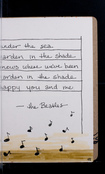 under the sea
arden in the shade
knows where we've been
arden in the shade
happy you and me
- the Beatles